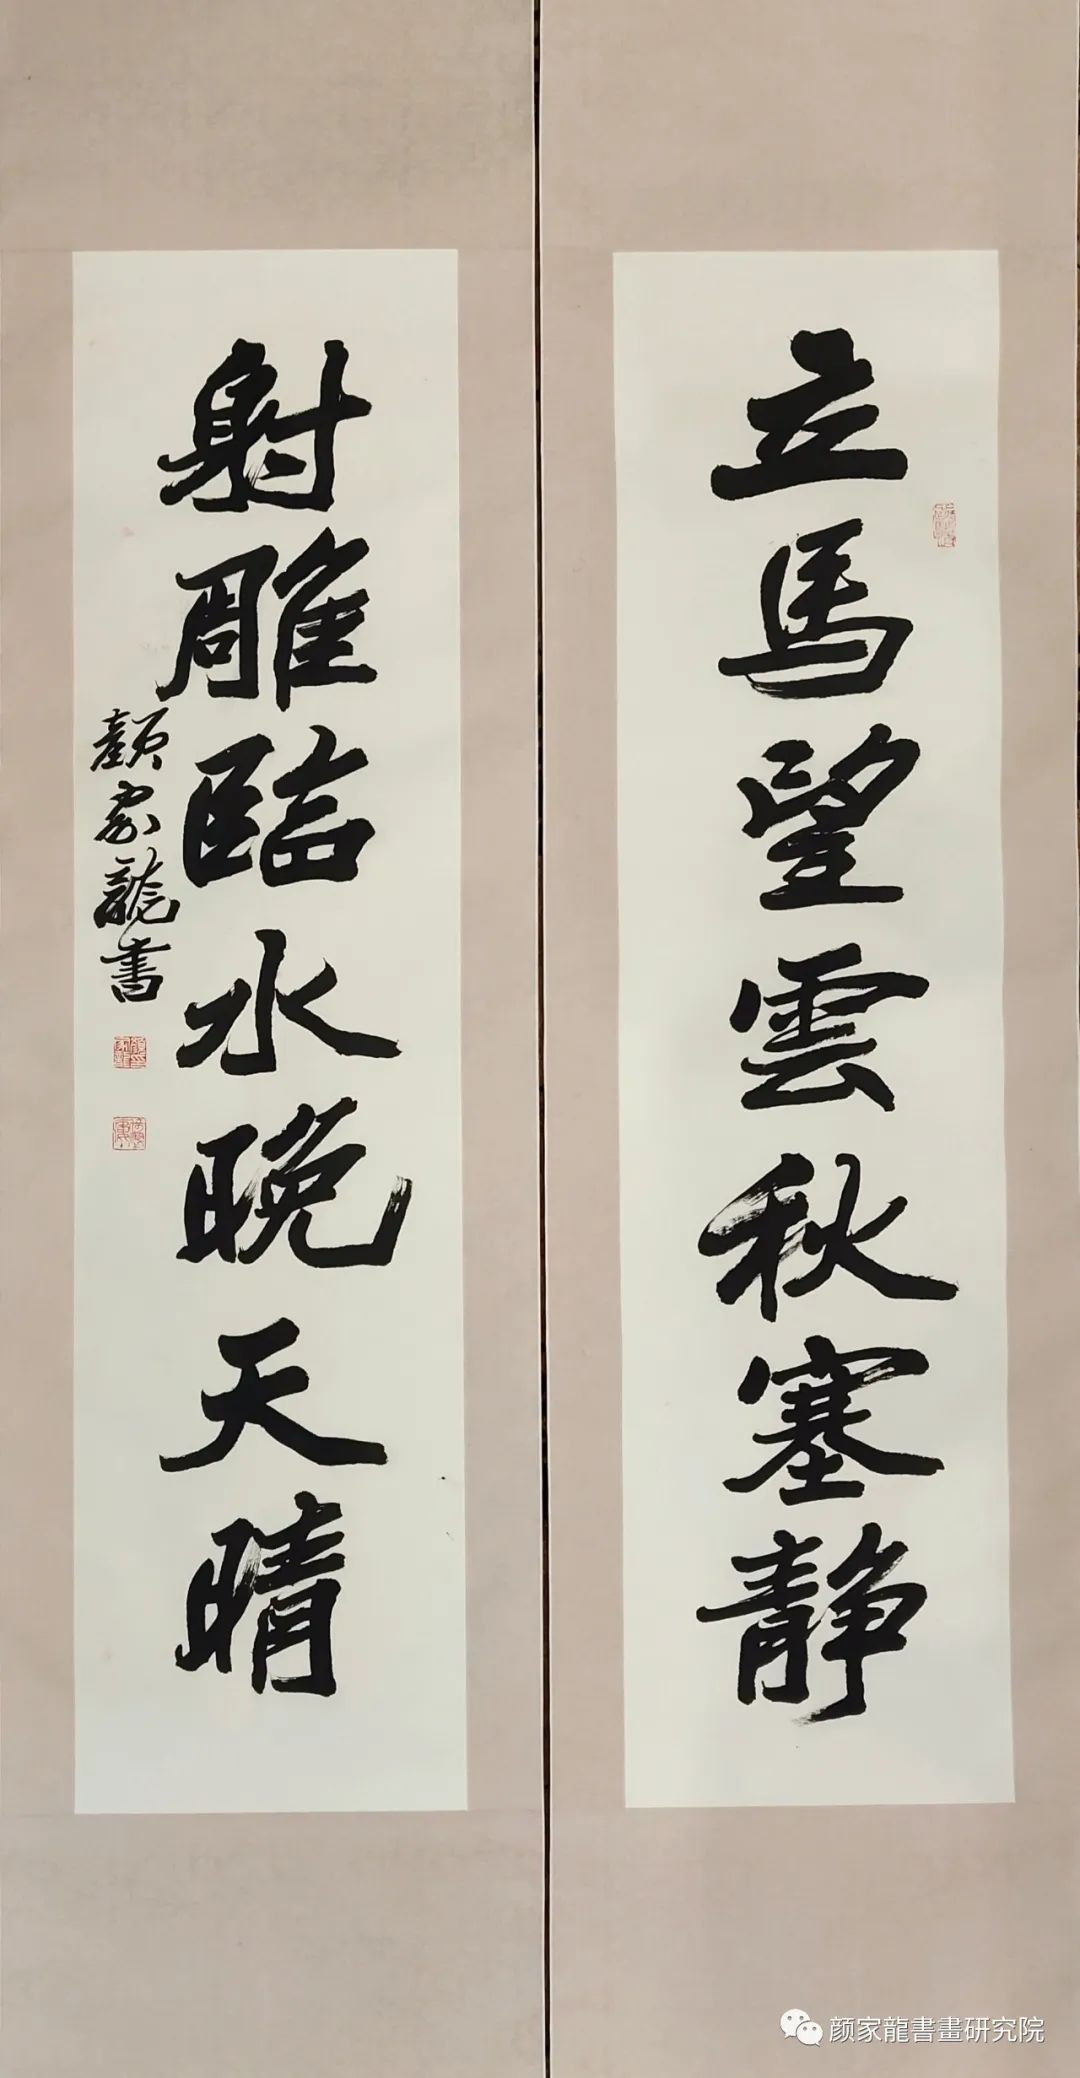 立馬望雲秋塞静
射雕臨水晚天晴
顏家龍書
颜家龍書畫研究院